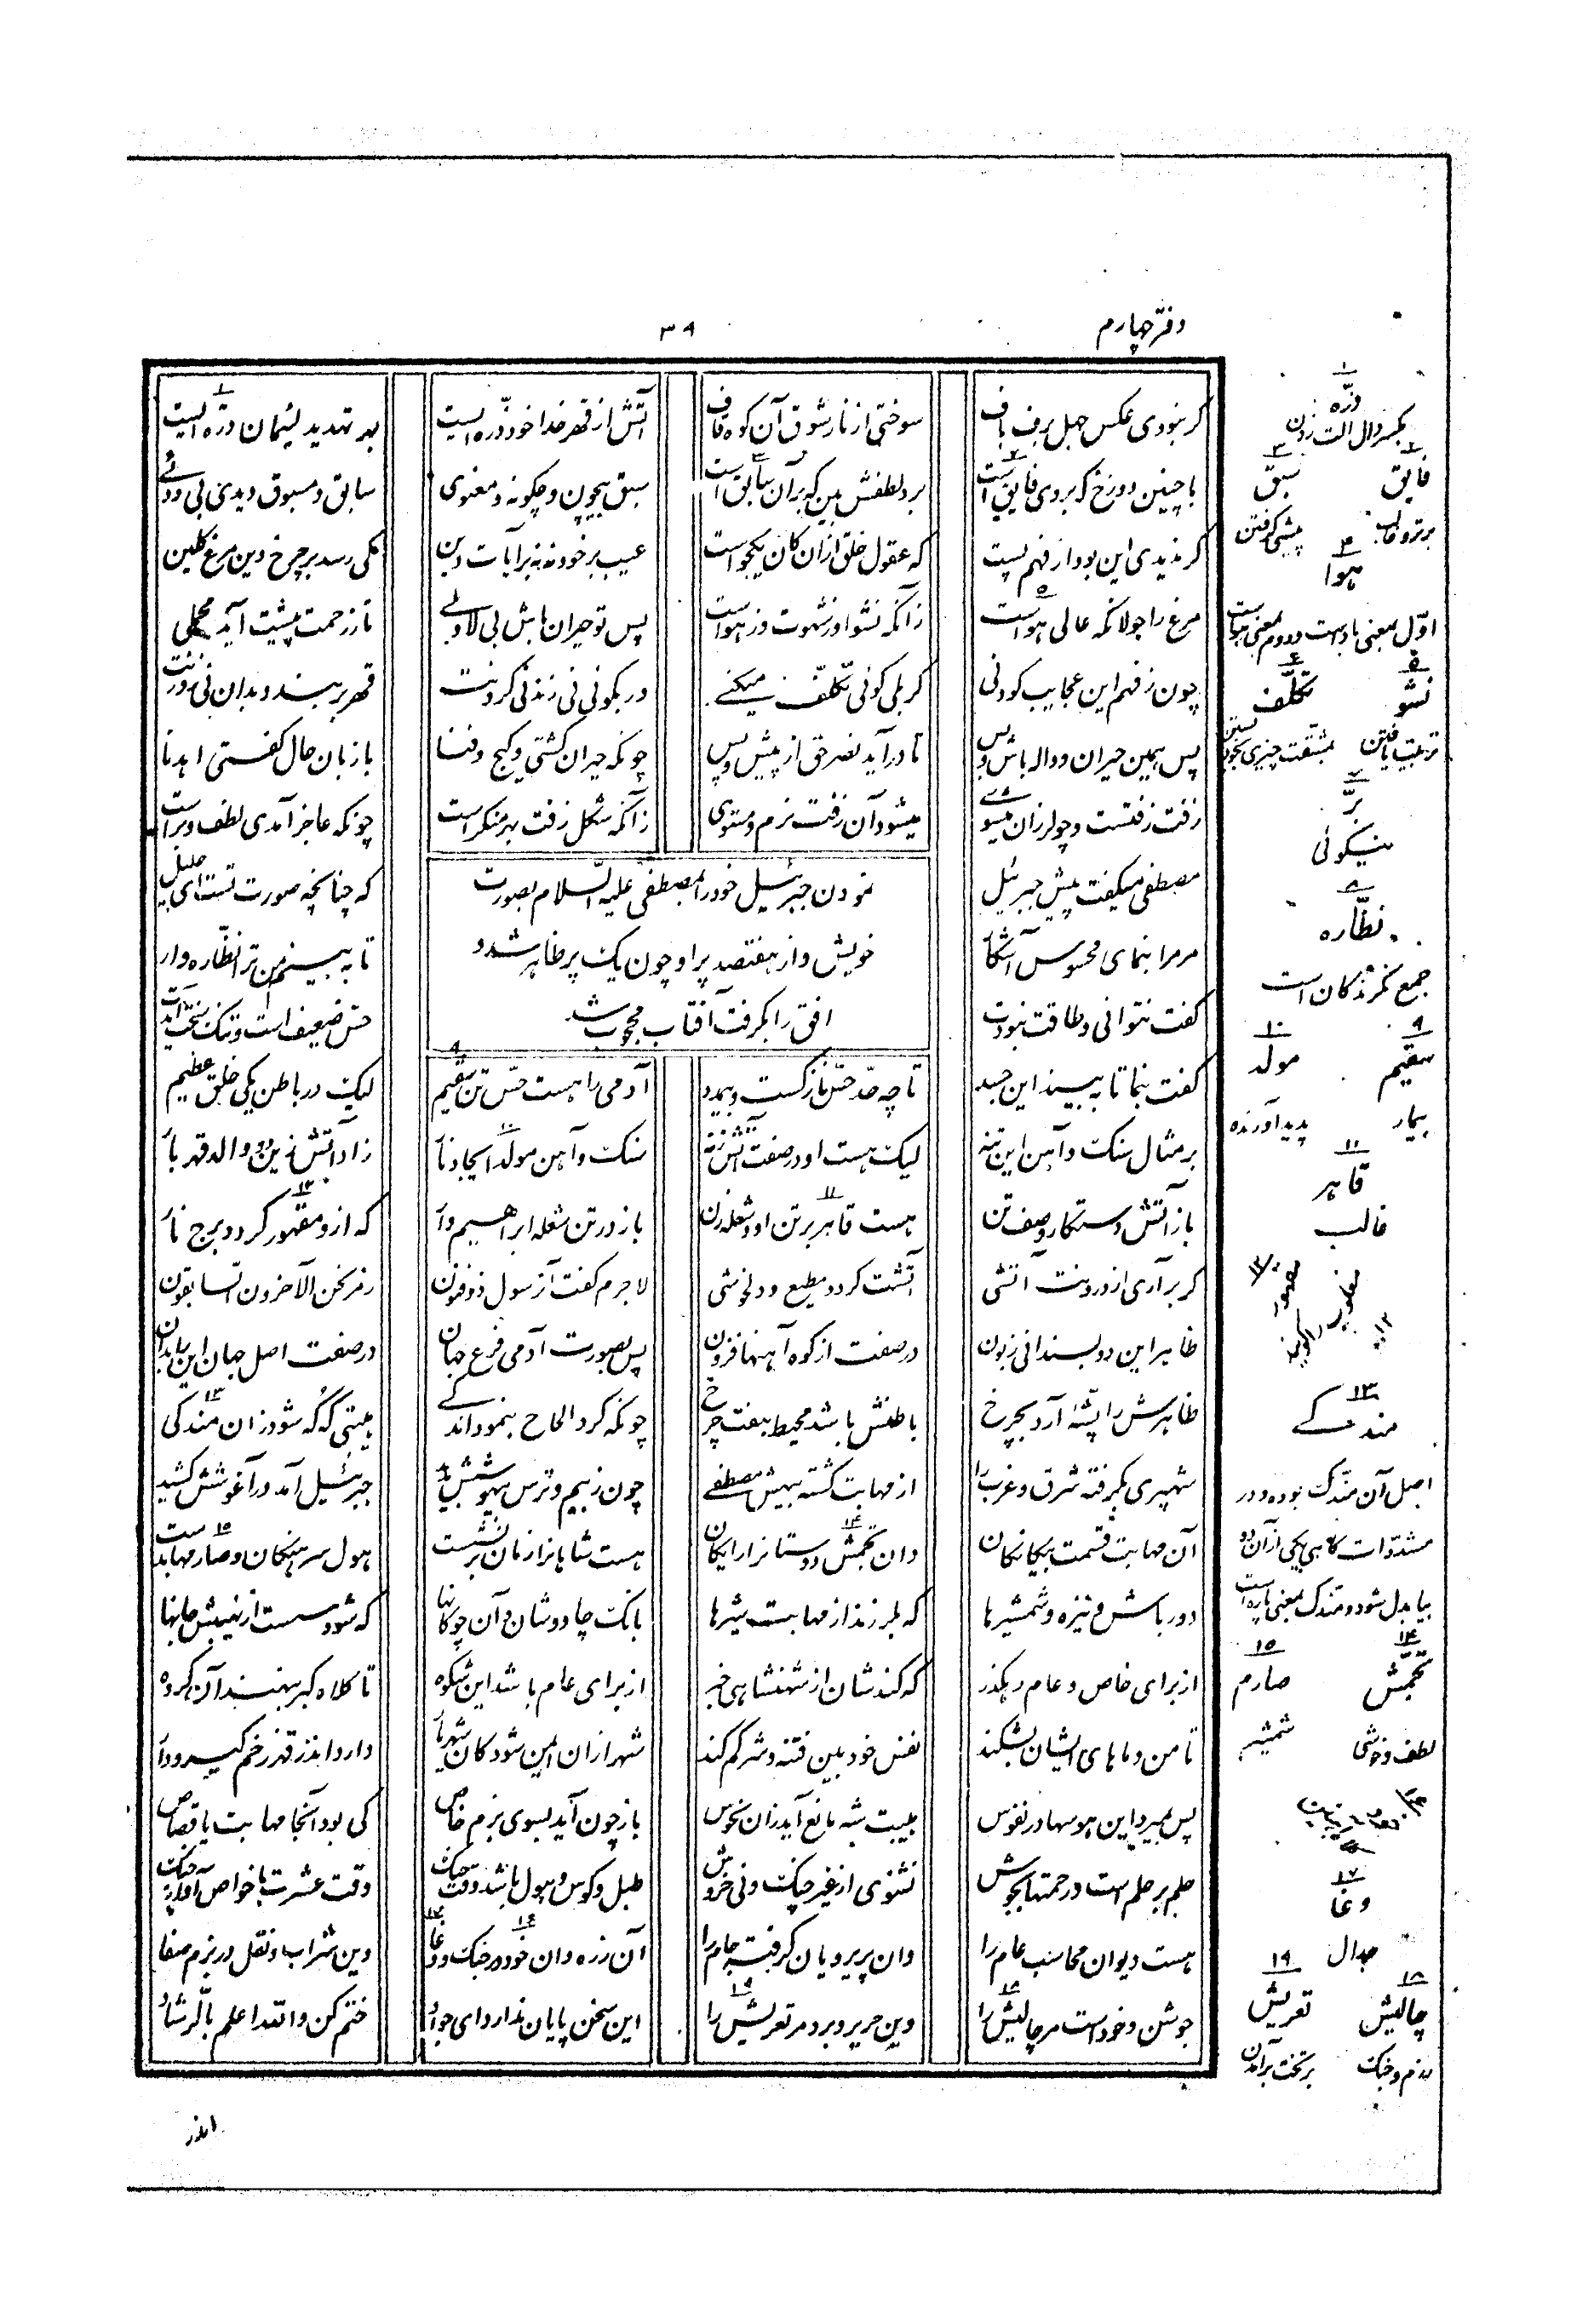 دفتر چهارم
۳۹
گر نبودی عکس جهل برف باف سوختی از نار شوق آن کوه قاف آتش از قهر خدا خود ذره ایست بهر تهدید لئیمان دره ایست
با چنین دوزخ که بروی فایق است برد لطفش بین که بر آن سابق است سبق بیچون و چگونه و معنوی سابق و مسبوق دیدی بی دوئی
گر ندیدی این بود از فهم پست که عقول خلق از آن کان یکجو است عیب بر خود نه نه بر آیات دین کی رسد بر چرخ دین مرغ گلین
مرغ را جولانگه عالی هواست زانکه نشو او ز شهوت وز هواست پس تو حیران باش بی لا و بلی تا ز رحمت پیشت آید محملی
چون ز فهم این عجایب کودنی گر بلی گوئی تکلف میکنی ور بگوئی نی زند نی گردنت قهر بر بندد بدان نی روزنت
پس همین حیران و واله باش و بس تا در آید نصر حق از پیش و پس چونکه حیران گشتی و گیج و فنا با زبان حال گفتی اهدنا
زفت زفتست و چو لرزان میشوی میشود آن زفت نرم و مستوی زانکه شکل زفت بهر منکر است چونکه عاجز آمدی لطف و بر است
نمودن جبرئیل خود را بمصطفی علیه السلام بصورت
خویش و از هفتصد پر او چون یک پر ظاهر شد و
افق را بگرفت آفتاب محجوب شد
مصطفی میگفت پیش جبرئیل که چنانچه صورت تست ای خلیل
مر مرا بنمای محسوس آشکار تا ببینم من ترا نظاره وار
گفت نتوانی و طاقت نبودت حس ضعیف است و تنک سخت آیدت
گفت بنما تا ببیند این جسد تا چه حد حس نازکست و بی مدد آدمی را هست حس تن سقیم لیک در باطن یکی خلق عظیم
بر مثال سنگ و آهن این تنه لیک هست او در صفت آتش زنه سنگ و آهن مولد ایجاد نار زاد آتش زین دو والد قهر بار
باز آتش دستکار وصف تن هست قاهر بر تن او و شعله زن باز در تن شعله ابراهیم وار که ازو مقهور گردد برج نار
گر برآری از درونت آتشی آتشت گردد مطیع و دلخوشی لاجرم گفت آن رسول ذوفنون رمز نحن الآخرون السابقون
ظاهر این دو بسندانی زبون در صفت از کوه آهنها فزون پس بصورت آدمی فرع جهان در صفت اصل جهان این را بدان
ظاهرش را پشه آرد بچرخ باطنش باشد محیط هفت چرخ چونکه کرد الحاح بنمود اندکی هیبتی که که شود زان مندکی
شهپری بگرفته شرق و غرب را از مهابت گشته بیهش مصطفی چون ز بیم و ترس بیهوشش بدید جبرئیل آمد در آغوشش کشید
آن مهابت قسمت بیگانگان وان تجمش دوستان را رایگان هست شاهان را زمان بر نشست هول سرهنگان و صارمها بدست
دور باش و نیزه و شمشیرها که بلرزند از مهابت شیرها بانگ چاووشان و آن چوگانها که شود سست از نهیبش جانها
از برای خاص و عام رهگذر که کندشان از شهنشاهی خبر از برای عام باشد این شکوه تا کلاه کبر بنهند آن گروه
تا من و ماهای ایشان بشکند نفس خودبین فتنه و شر کم کند شهر از آن ایمن شود کان شهریار دارد اندر قهر زخم گیر و دار
پس بمیرد این هوسها در نفوس هیبت شه مانع آید زان نحوس باز چون آید بسوی بزم خاص کی بود آنجا مهابت یا قصاص
حلم بر حلم است و رحمتها بجوش نشنوی از غیر چنگ و نی خروش طبل و کوس و هول باشد وقت جنگ وقت عشرت با خواص آواز چنگ
هست دیوان محاسب عام را وان پریرویان گرفته جام را آن زره وان خود در جنگ و وغا وین شراب و نقل در بزم صفا
جوشن و خود است مر چالیش را وین حریر و برد مر تعریش را این سخن پایان ندارد ای جواد ختم کن والله اعلم بالرشاد
۱
دره
بکسر دال الت زدن
۲ فایق ۳ سبق
برتر و غالب پیشی گرفتن
۴
هوا
اول بمعنی باد است و دوم بمعنی هواست
۵ نشو ۶ تکلف
تربیت یافتن بمشقت چیزی بخود بستن
۷
بر
نیکوئی
۸
نظاره
جمع نگرندگان است
۹ سقیم ۱۰ مولد
بیمار پدید آورنده
۱۱
قاهر
غالب
۱۲
مقهور
مغلوب
۱۳
مندکی
اصل آن مندک بوده و در
مشددات گاهی یکی از آن دو
بیا بدل شود و مندک بمعنی پاره است
۱۴ تجمش ۱۵ صارم
لطف و خوشی شمشیر
۱۶
۱۷
وغا
جدال
۱۸ چالیش ۱۹ تعریش
رزم و جنگ بر تخت برآمدن
اندر